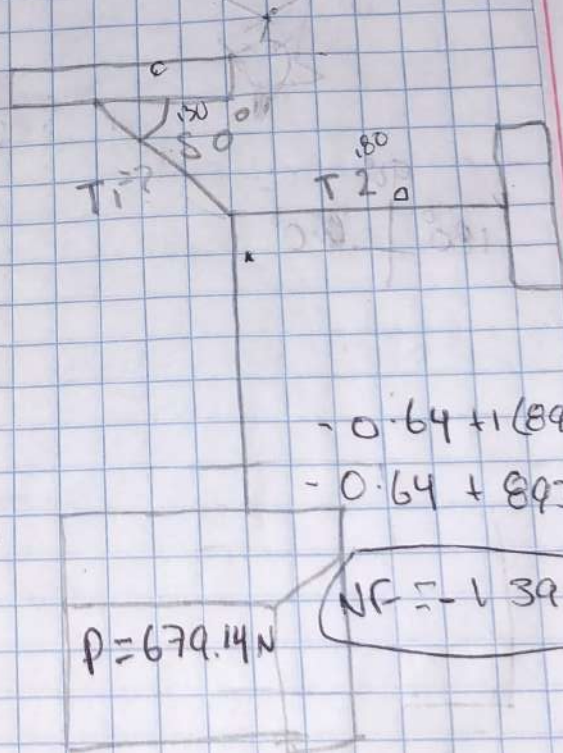 C
50°
T1=?
.80
T2
- 0.64 +1(89
- 0.64 + 89
NF = -1 39
P=679.14N